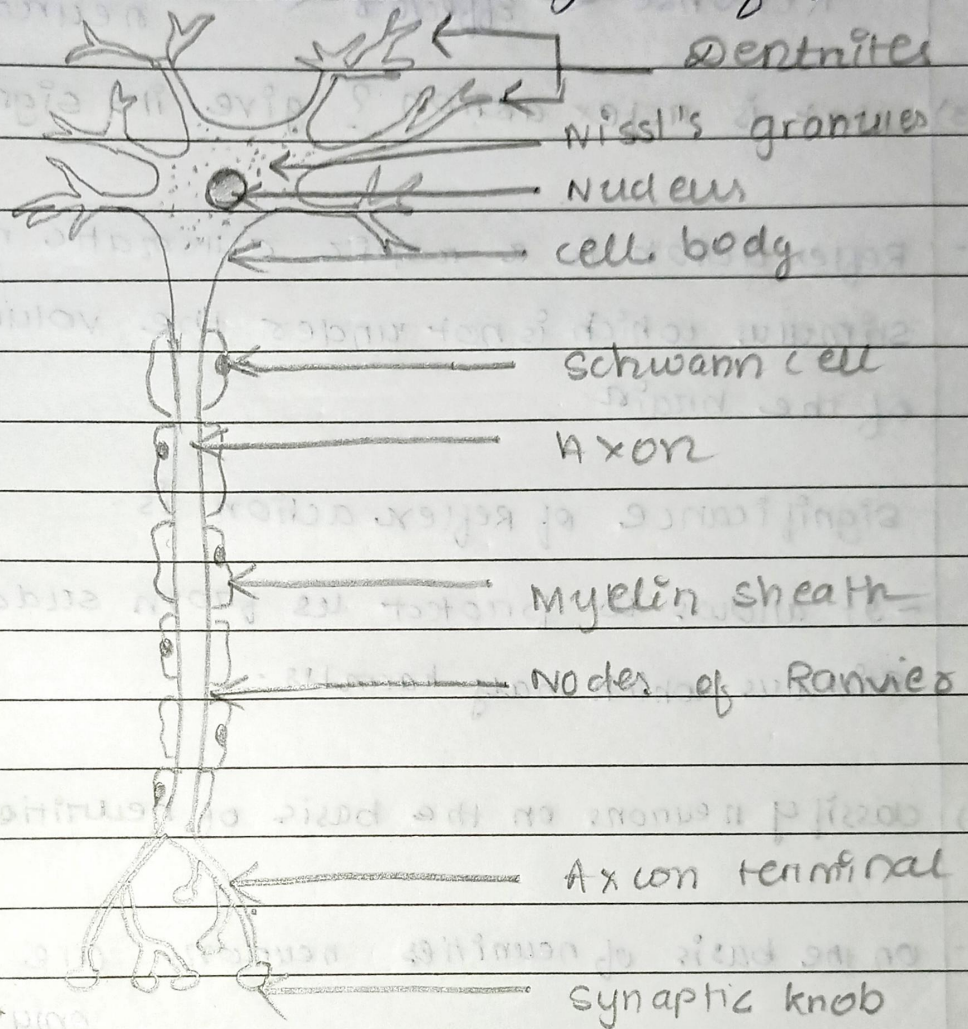 Dentnites
Nissl's granules
Nucleus
cell body
Schwann cell
Axon
Myelin sheath
Nodes of Ranvier
Axcon terminal
Synaptic knob